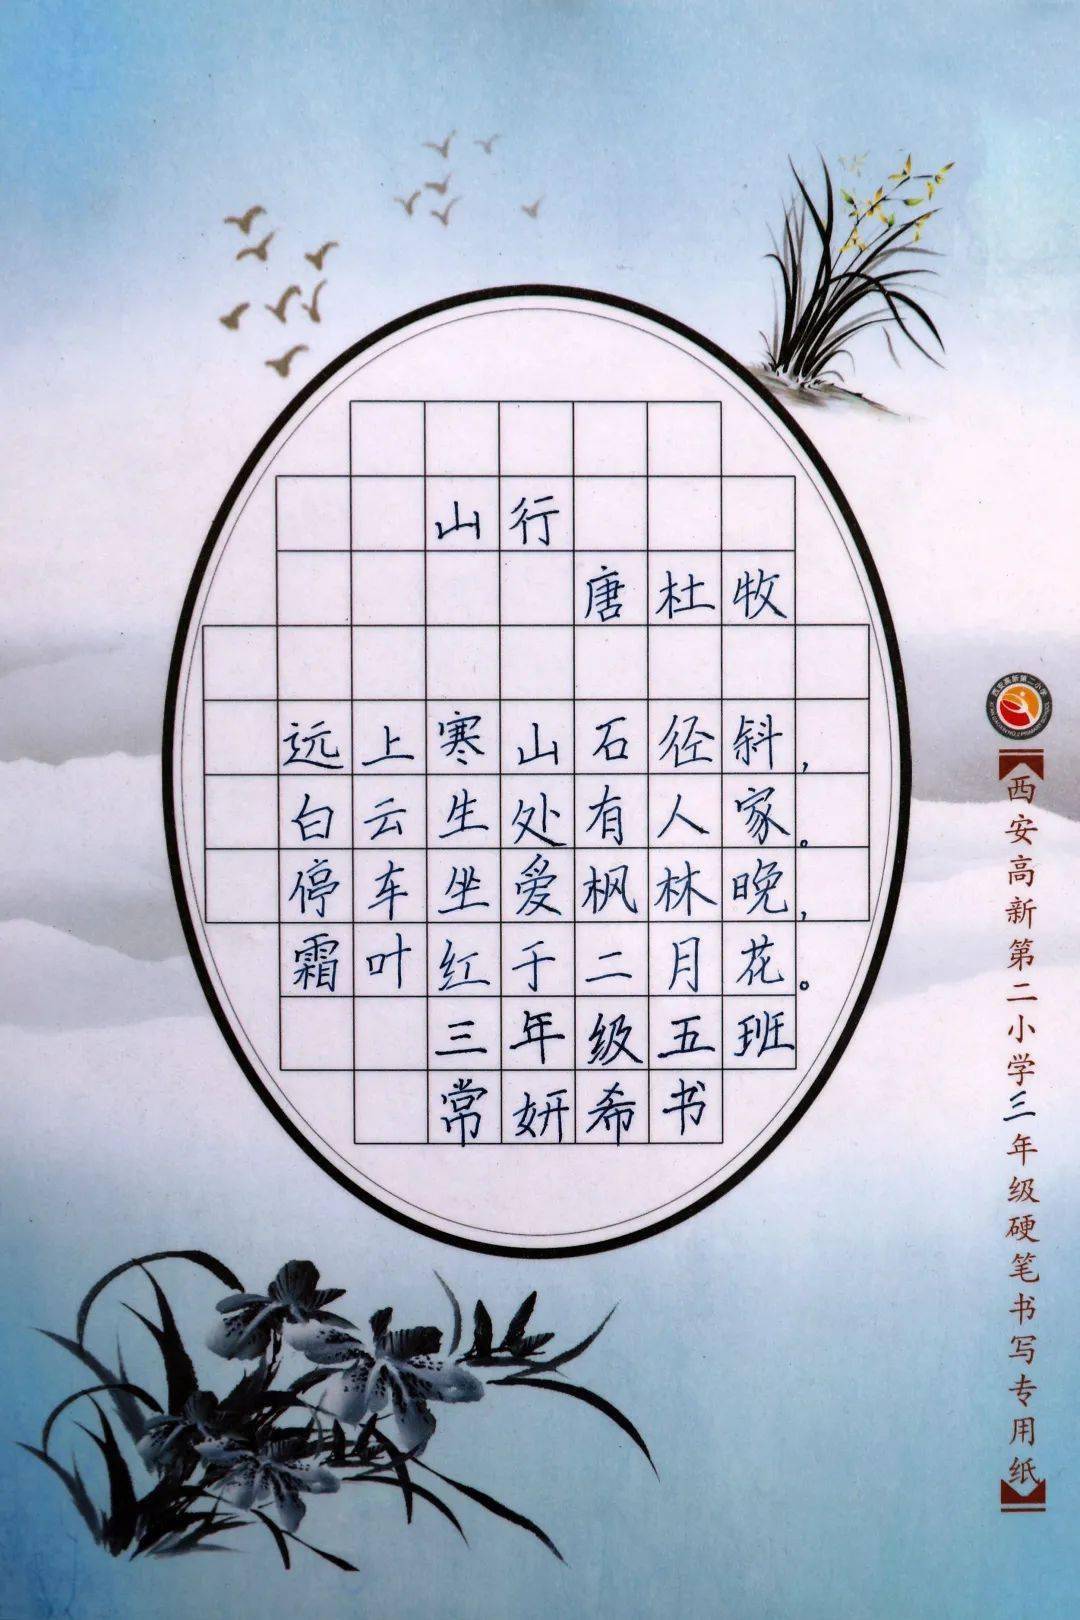 山行
唐杜牧
远上寒山石径斜，
白云生处有人家。
停车坐爱枫林晚，
霜叶红于二月花。
三年级五班
常妍希书
西安高新第二小学三年级硬笔书写专用纸
西安高新第二小学